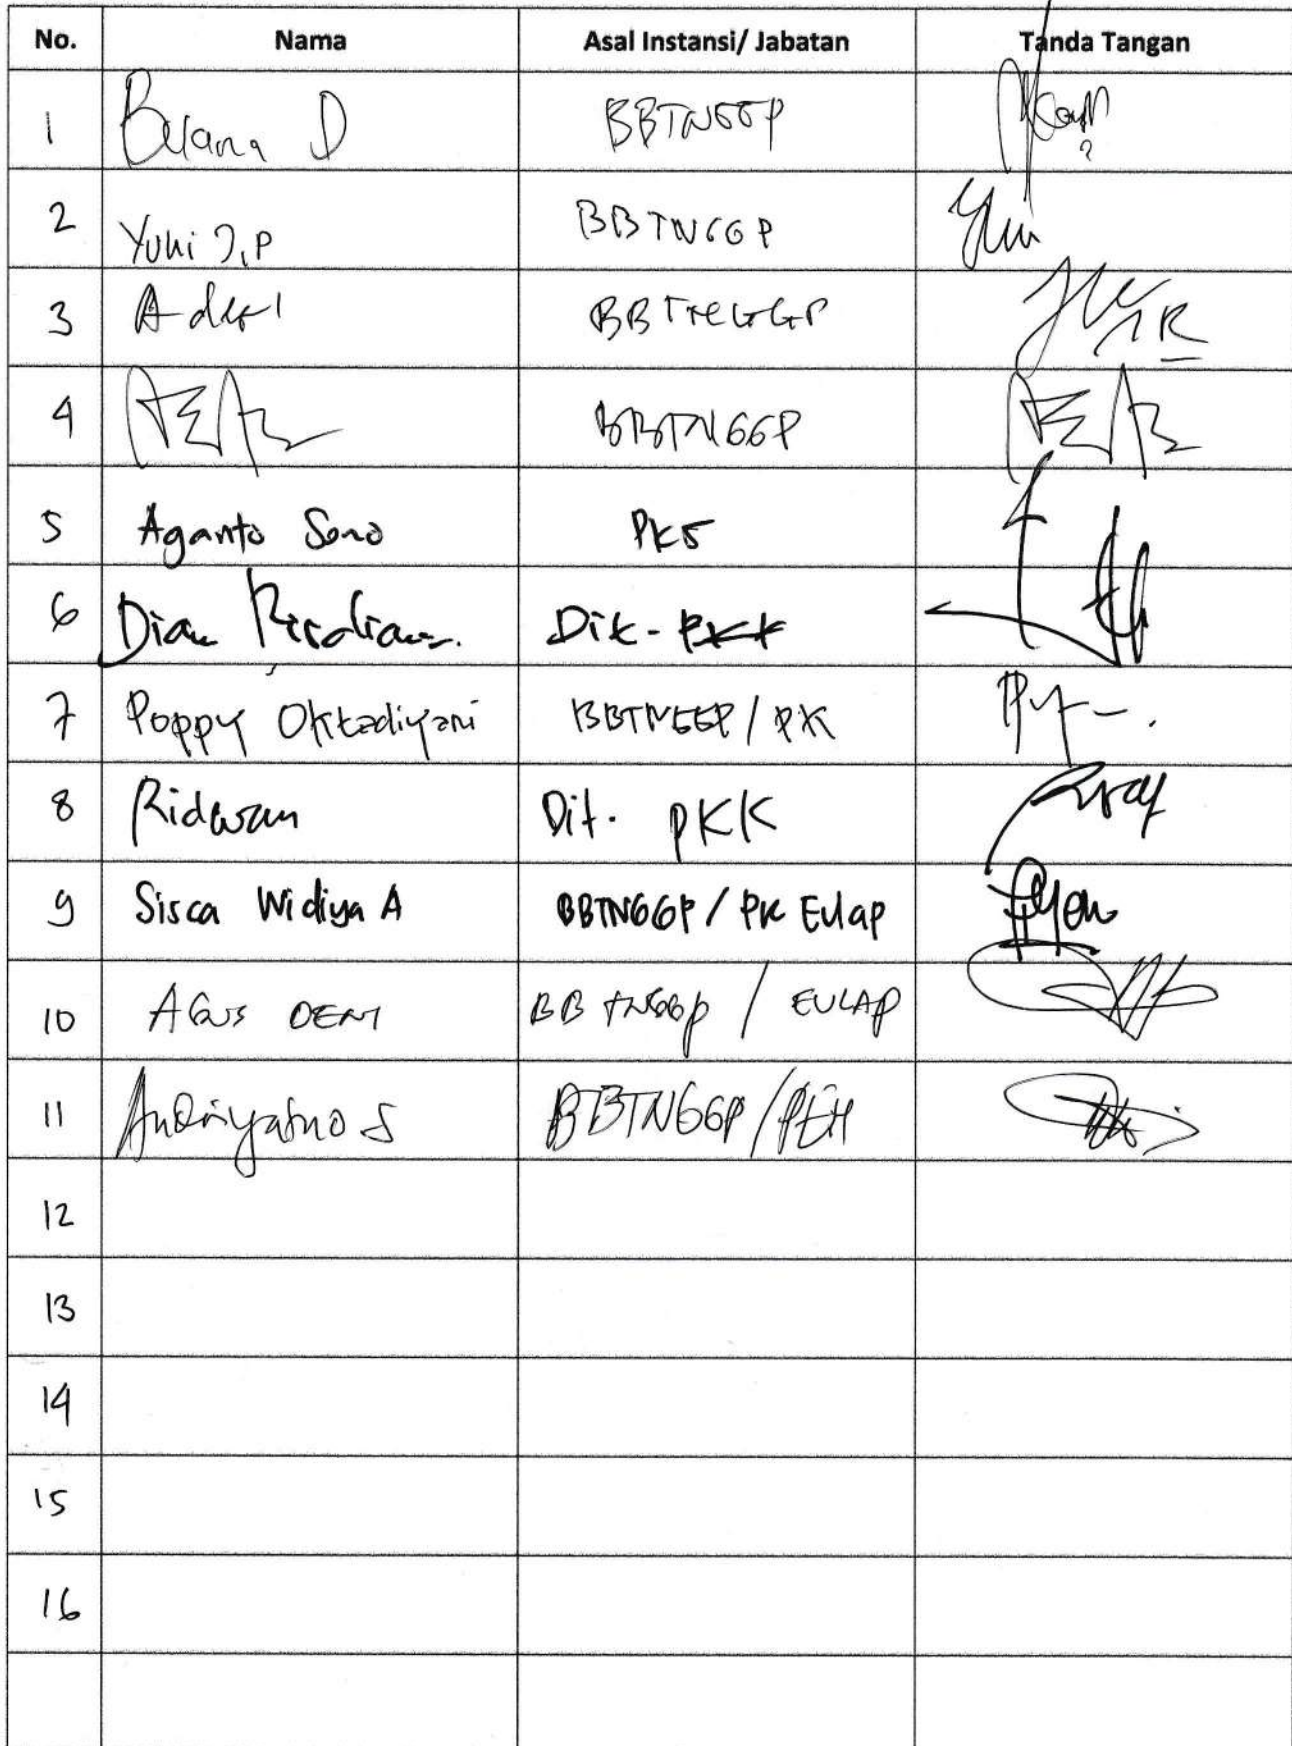 No. Nama Asal Instansi/ Jabatan Tanda Tangan
1 Buana D BBTNGGP
2 Yuni D.P BBTNGGP
3 BBTNGGP
4 BBTNGGP
5 Aganto Seno PKS
6 Dian Dit. PKK
7 Poppy Oktadiyani BBTNGGP / PK
8 Ridwan Dit. PKK
9 Sisca Widiya A BBTNGGP / PK Eulap
10 AGUS DENI BB TNGGP / EULAP
11 Andriyatno S BBTNGGP / PEH
12
13
14
15
16